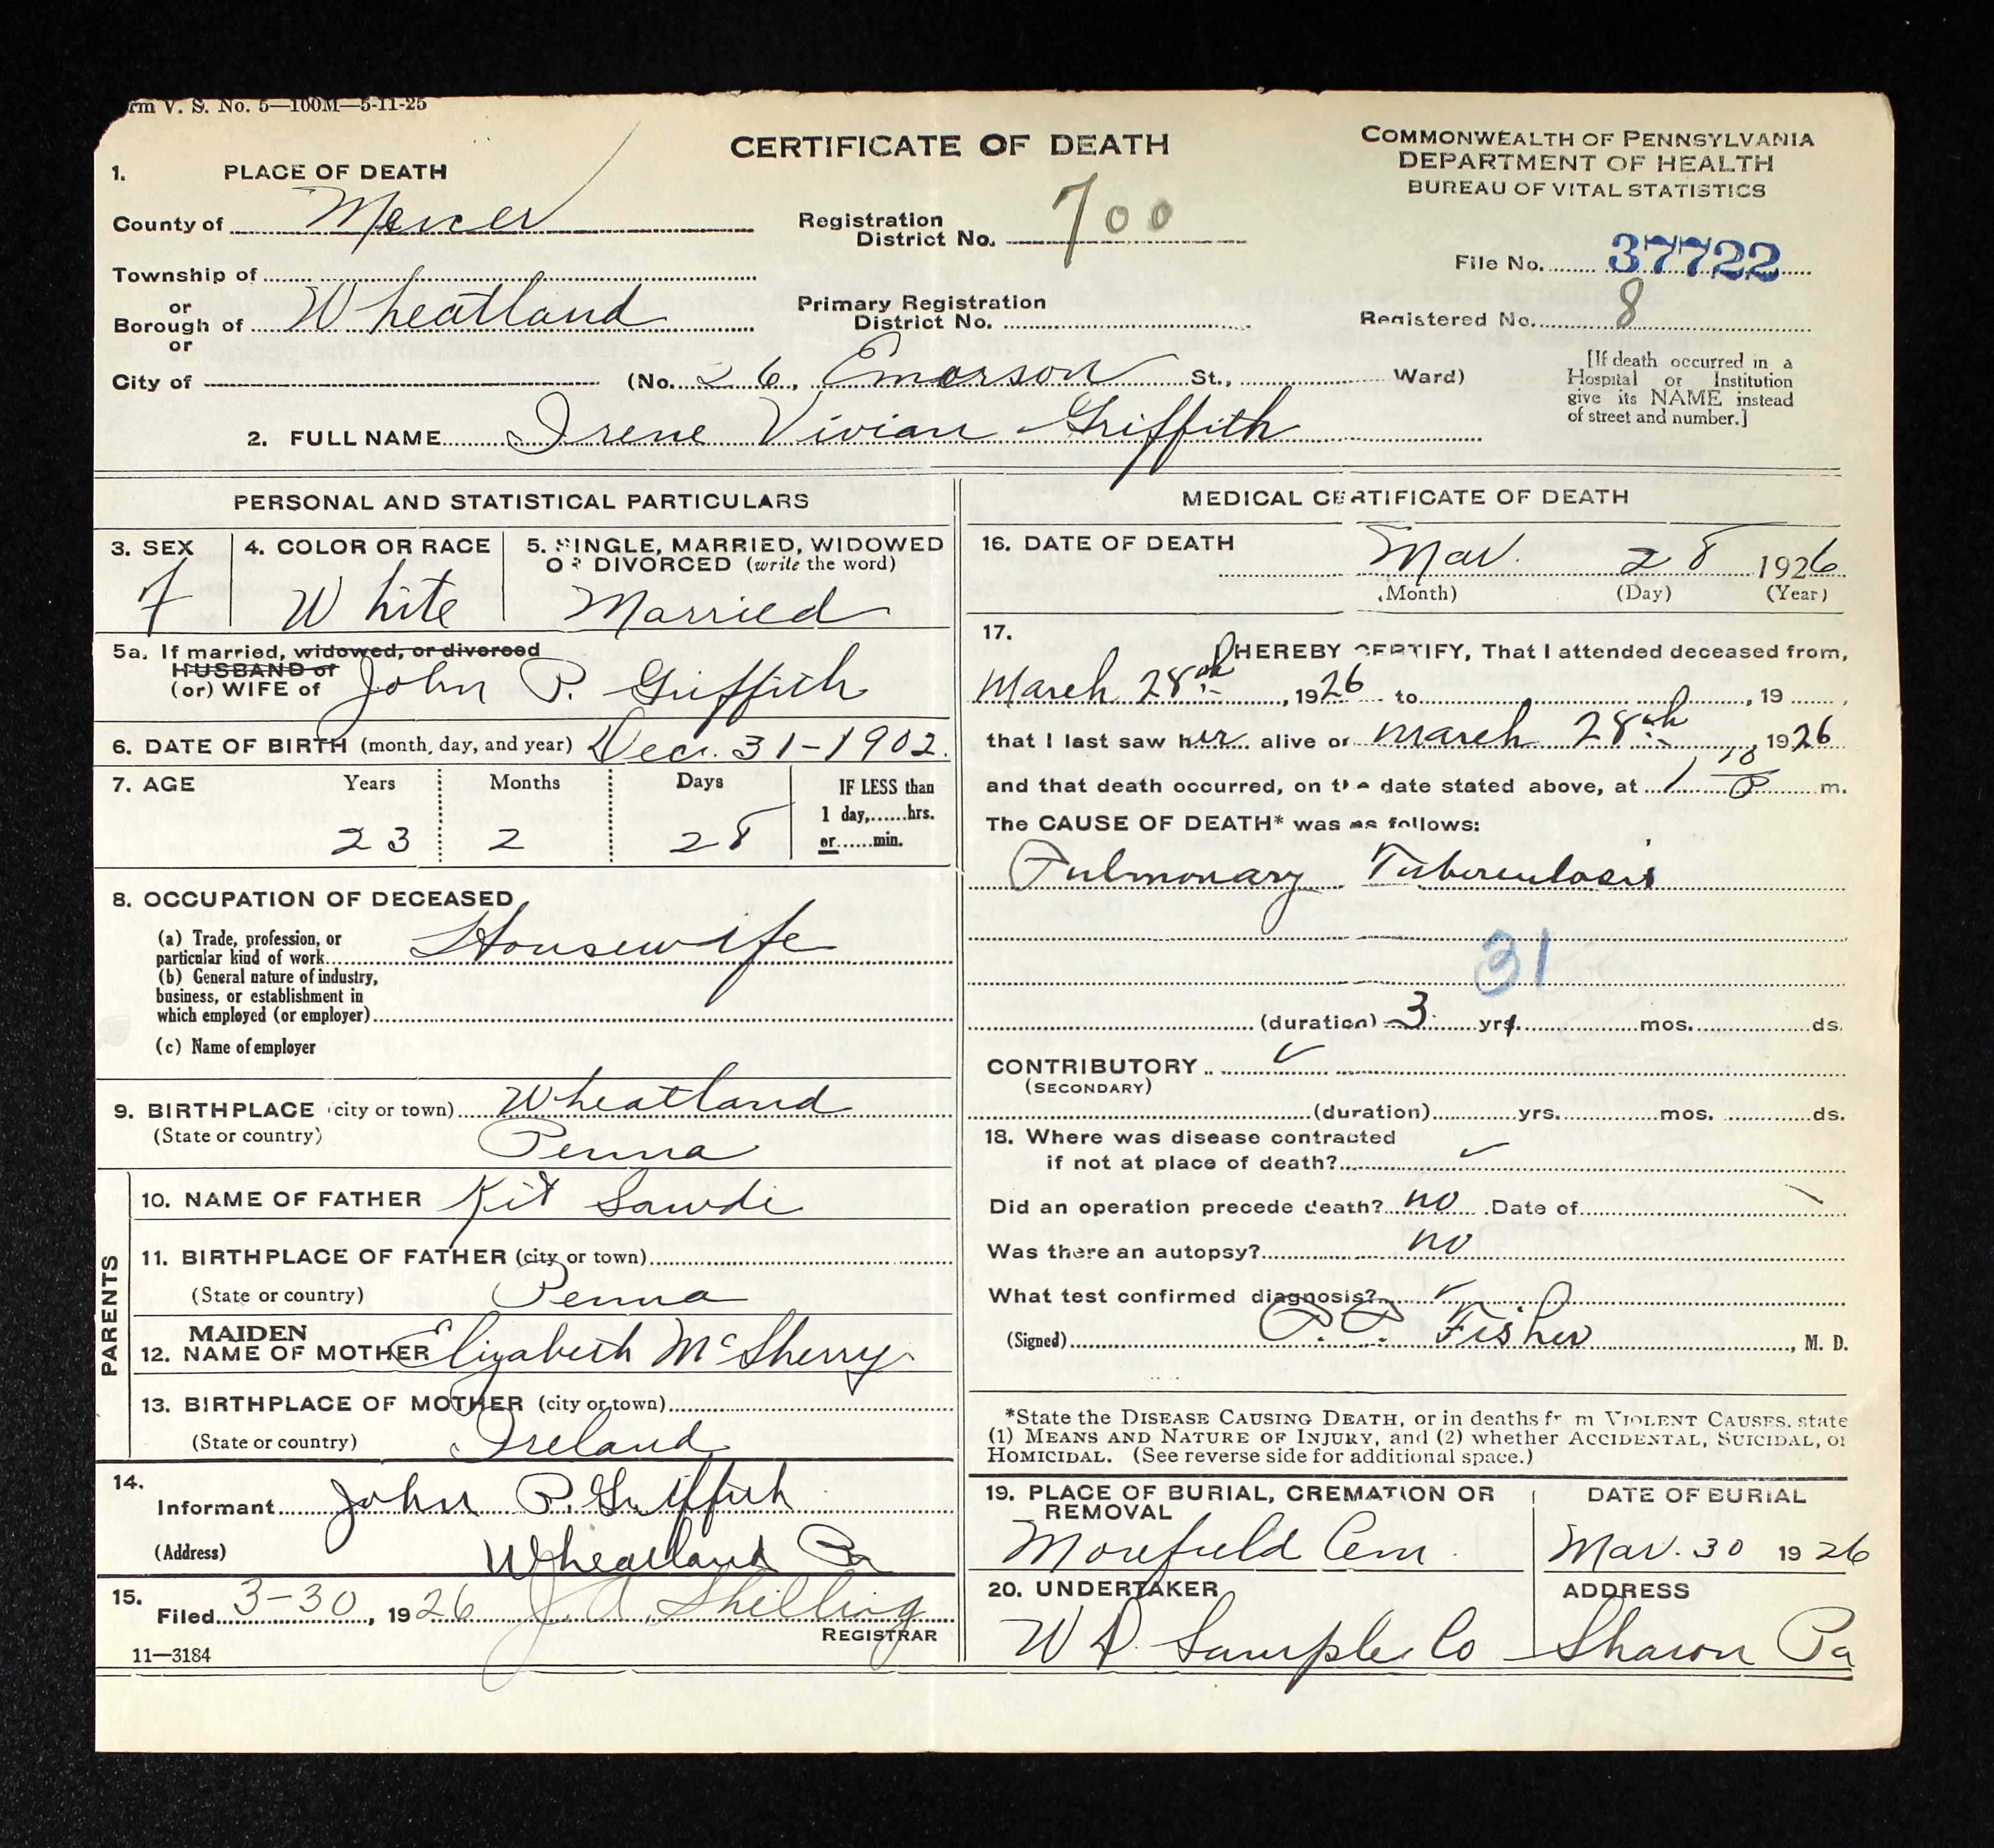 rm V. S. No. 5—100M—5-11-25
CERTIFICATE OF DEATH
COMMONWEALTH OF PENNSYLVANIA
DEPARTMENT OF HEALTH
BUREAU OF VITAL STATISTICS
1. PLACE OF DEATH
County of Mercer
Registration District No. 700
File No. 37722
Township of
or
Borough of Wheatland
or
Primary Registration District No.
Registered No. 8
City of (No. 26, Emerson St., Ward)
[If death occurred in a Hospital or Institution give its NAME instead of street and number.]
2. FULL NAME Irene Vivian Griffith
PERSONAL AND STATISTICAL PARTICULARS
3. SEX
F
4. COLOR OR RACE
White
5. SINGLE, MARRIED, WIDOWED OR DIVORCED (write the word)
Married
5a. If married, widowed, or divorced
HUSBAND of
(or) WIFE of John P. Griffith
6. DATE OF BIRTH (month, day, and year) Dec. 31-1902.
7. AGE Years Months Days
23 2 28
IF LESS than
1 day,......hrs.
or......min.
8. OCCUPATION OF DECEASED
(a) Trade, profession, or
particular kind of work Housewife
(b) General nature of industry,
business, or establishment in
which employed (or employer)
(c) Name of employer
9. BIRTHPLACE (city or town) Wheatland
(State or country) Penna
PARENTS
10. NAME OF FATHER Kit Sawdi
11. BIRTHPLACE OF FATHER (city or town)
(State or country) Penna
MAIDEN
12. NAME OF MOTHER Elizabeth McSherry
13. BIRTHPLACE OF MOTHER (city or town)
(State or country) Ireland
14.
Informant John P. Griffith
(Address) Wheatland Pa
15.
Filed 3-30, 1926 J. A. Shilling
REGISTRAR
11—3184
MEDICAL CERTIFICATE OF DEATH
16. DATE OF DEATH
Mar. 28 1926
(Month) (Day) (Year)
17.
I HEREBY CERTIFY, That I attended deceased from,
March 28th, 1926 to , 19 ,
that I last saw her alive on March 28th, 1926
and that death occurred, on the date stated above, at 1 10 P m.
The CAUSE OF DEATH* was as follows:
Pulmonary Tuberculosis
31
(duration) 3 yrs. mos. ds.
CONTRIBUTORY ✓
(SECONDARY)
(duration) yrs. mos. ds.
18. Where was disease contracted
if not at place of death? ✓
Did an operation precede death? no Date of
Was there an autopsy? no
What test confirmed diagnosis? ✓
(Signed) P. P. Fisher, M. D.
*State the DISEASE CAUSING DEATH, or in deaths fr m VIOLENT CAUSES, state
(1) MEANS AND NATURE OF INJURY, and (2) whether ACCIDENTAL, SUICIDAL, or
HOMICIDAL. (See reverse side for additional space.)
19. PLACE OF BURIAL, CREMATION OR REMOVAL
Morefield Cem.
DATE OF BURIAL
Mar. 30 1926
20. UNDERTAKER
W D. Sample Co
ADDRESS
Sharon Pa